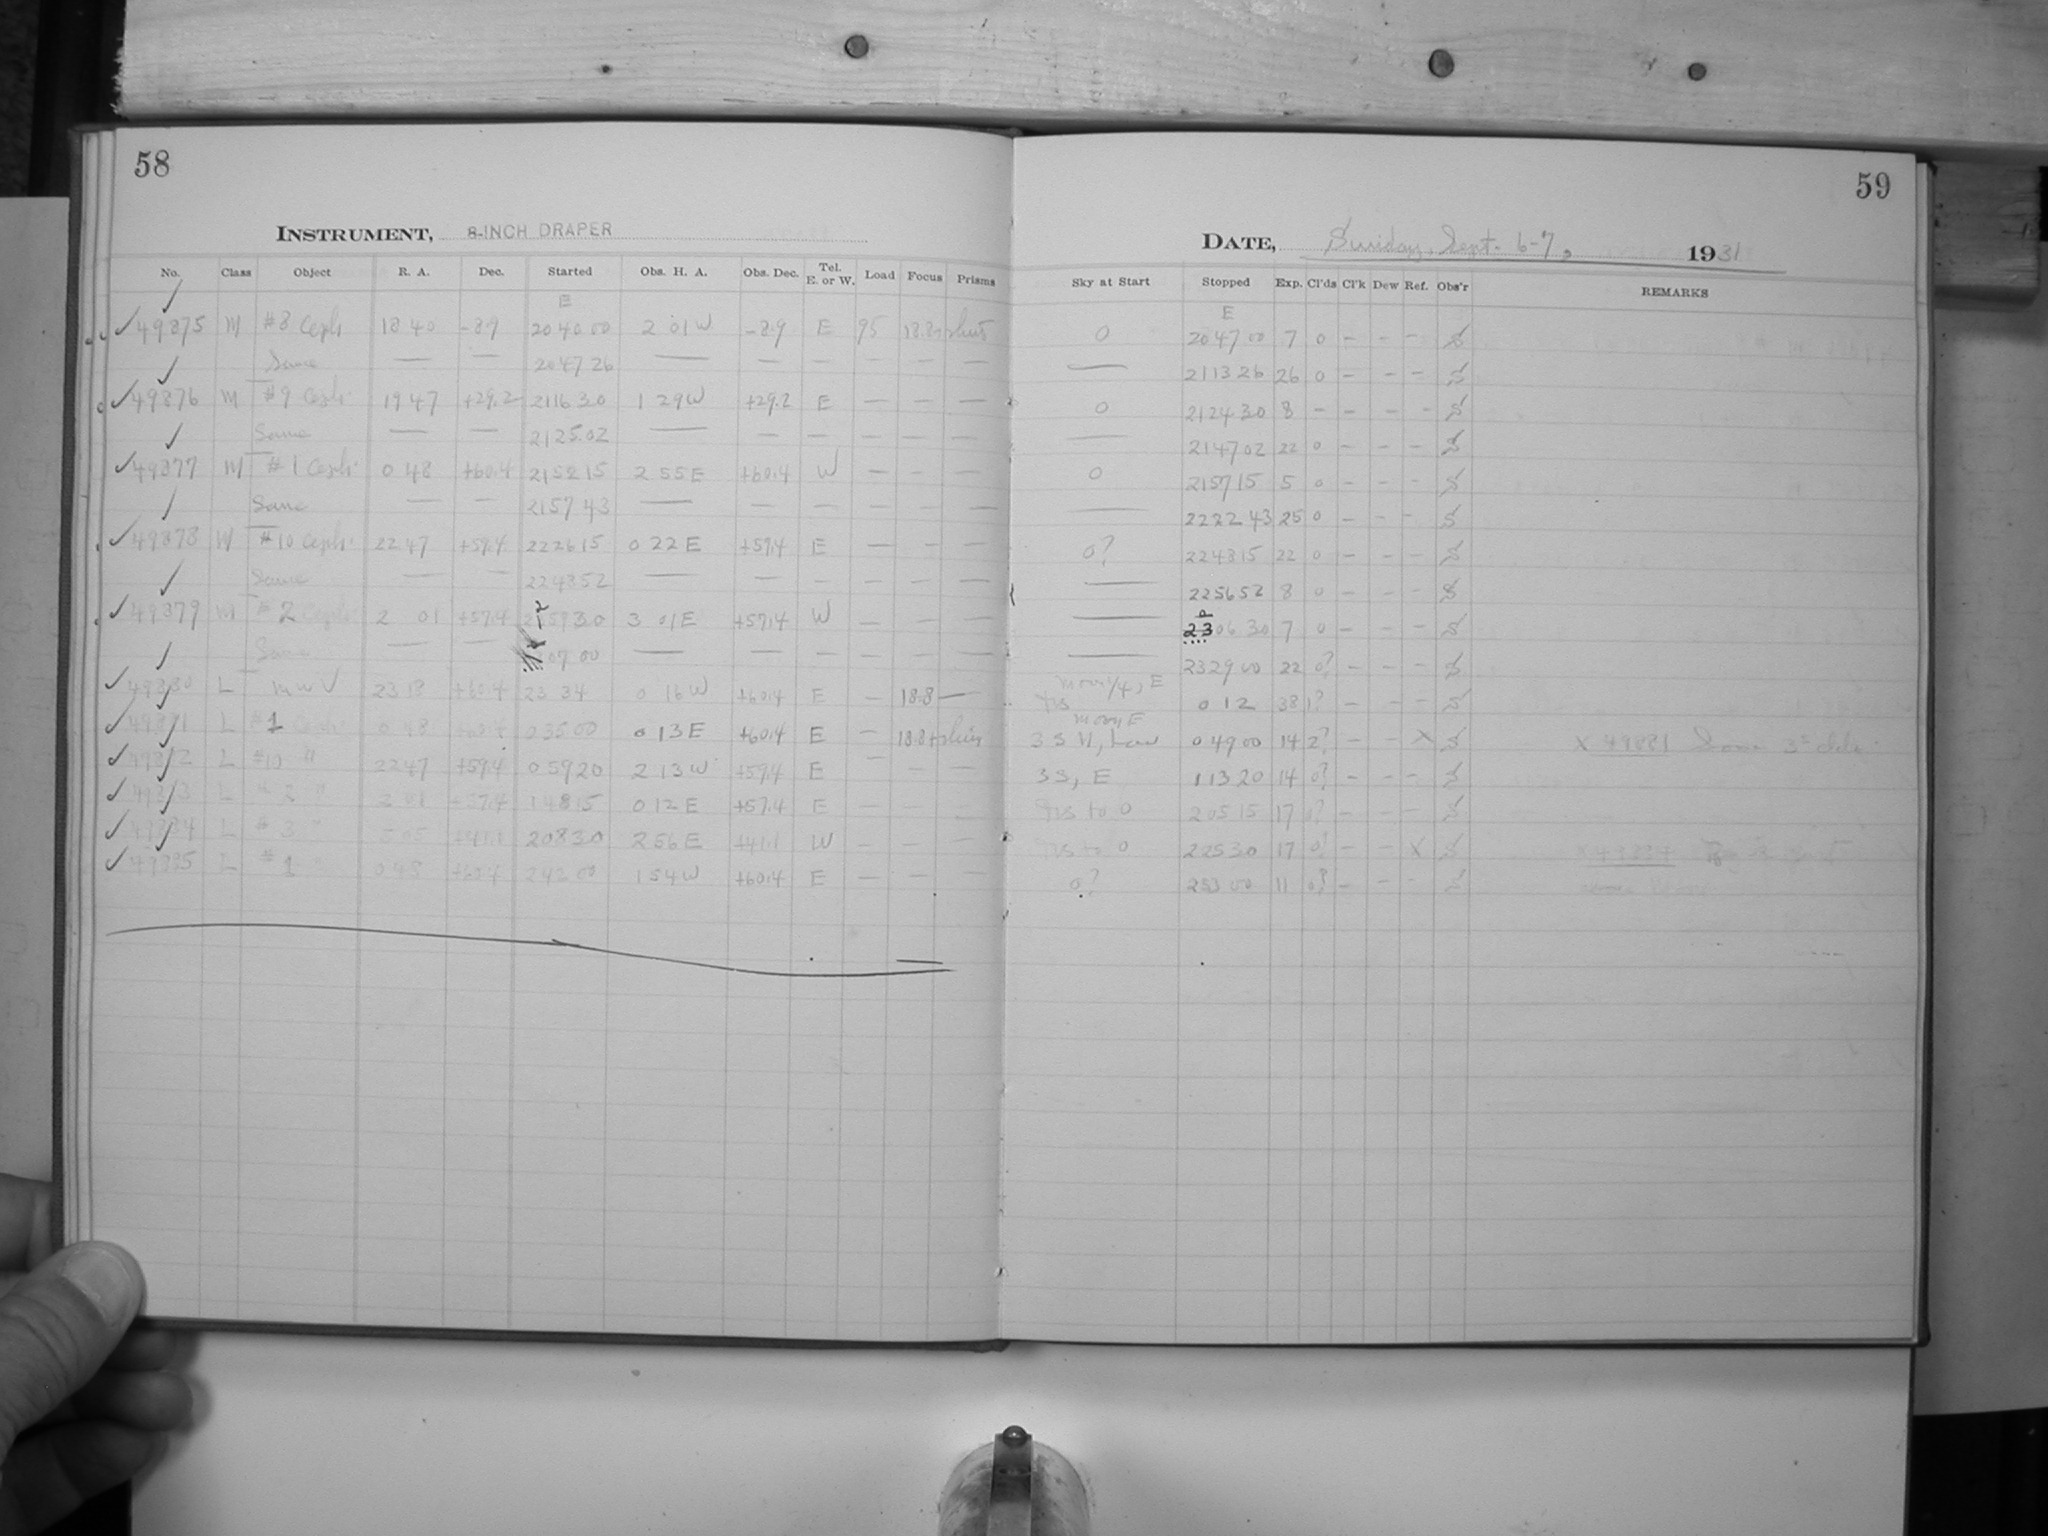 58
INSTRUMENT, 8-INCH DRAPER
No. Class Object R. A. Dec. Started Obs. H. A. Obs. Dec. Tel. E. or W. Load Focus Prisms
E
49875 M #8 Ceph 18 40 -8.9 20 40 00 2 01 W -8.9 E 95
Same — — 20 47 26 — — — — — —
49876 M #9 Ceph. 19 47 +29.2 21 16 30 1 29 W +29.2 E — — —
Same — — 21 25 02 — — — — — —
49877 M #1 Ceph. 0 48 +60.4 21 52 15 2 55 E +60.4 W — — —
Same — — 21 57 43 — — — — — —
49878 M #10 Ceph. 22 47 +59.4 22 26 15 0 22 E +59.4 E — — —
Same — — 22 48 52 — — — — — —
49879 M #2 Ceph. 2 01 +57.4 22 59 30 3 01 E +57.4 W — — —
Same — — 07 00 — — — — — —
49880 L 23 18 +60.4 23 34 0 16 W +60.4 E — 18.8 —
49881 L #1 0 48 +60.4 0 35 00 0 13 E +60.4 E —
49882 L #10 " 22 47 +59.4 0 59 20 2 13 W +59.4 E — — —
49883 L #2 " 2 01 +57.4 1 48 15 0 12 E +57.4 E — — —
49884 L #3 " 5 05 +41.1 2 08 30 2 56 E +41.1 W — — —
49885 L #1 0 48 +60.4 2 42 00 1 54 W +60.4 E — — —
59
DATE, Sunday, Sept. 6-7, 1931
Sky at Start Stopped Exp. Cl'ds Cl'k Dew Ref. Obs'r REMARKS
E
0 20 47 00 7 0 - - - S
— 21 13 26 26 0 - - - S
0 21 24 30 8 - - - - S
— 21 47 02 22 0 - - - S
0 21 57 15 5 0 - - - S
— 22 22 43 25 0 - - - S
0? 22 48 15 22 0 - - - S
— 22 56 52 8 0 - - - S
— 23 06 30 7 0 - - - S
— 23 29 00 22 0? - - - S
E
0 12 38 1? - - - S
moon E
3 S 0 49 00 14 2? - - X S X 49881
3 S, E 1 13 20 14 0? - - - S
to 0 2 05 15 17 0? - - - S
to 0 2 25 30 17 0? - - X S X 49884
0? 2 53 00 11 0? - - - S